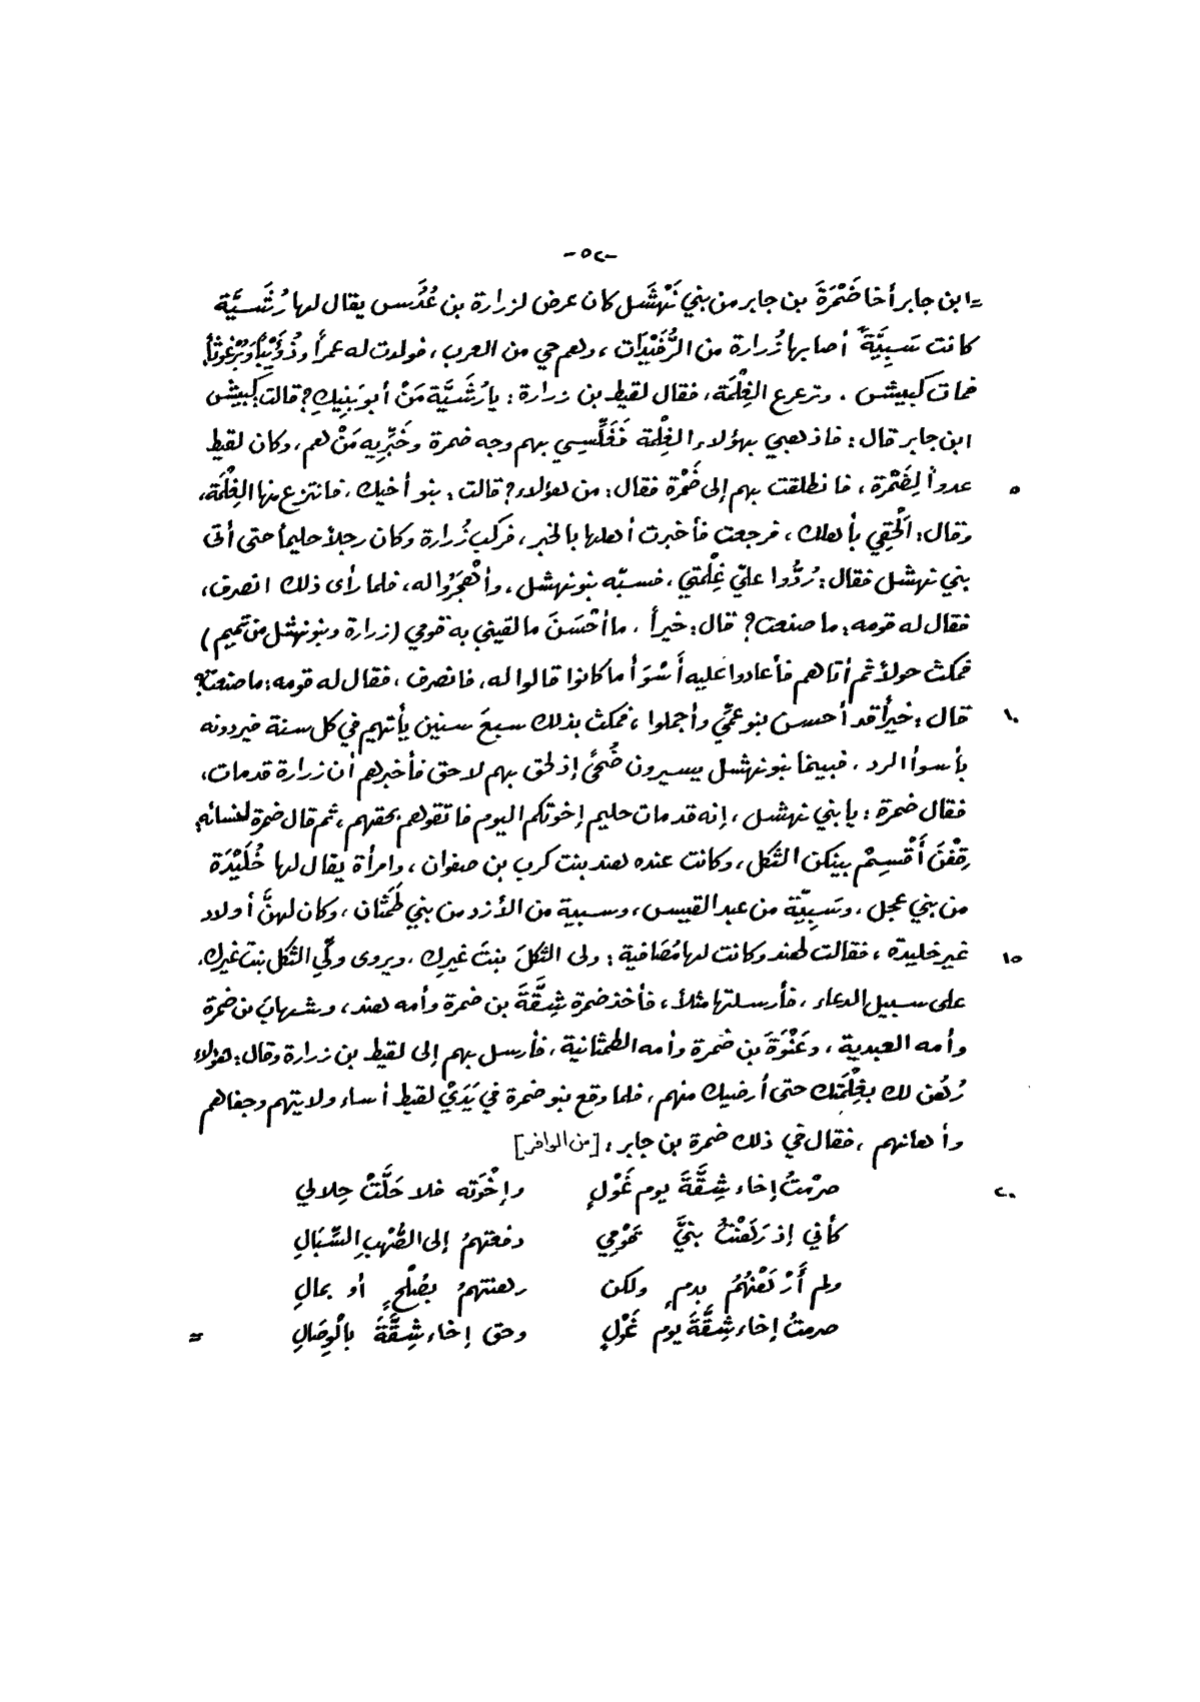 -٥٢-
= ابن جابر أخا ضَمْرَةَ بن جابر من بني نَهْشَل كان عرض لزرارة بن عُدَس يقال لها رُشَيَّة
كانت سَبِيَّةً أصابها زُرارة من الرُّفَيْدَات ، وهم حي من العرب ، فولدت له عمراً وذُؤَيْباً وبُرْغوثاً
فمات كبيش . وترعرع الغِلْمَة ، فقال لقيط بن زرارة : يا رُشَيَّة مَنْ أبو بَنِيكِ ؟ قالت : كبيش
ابن جابر قال : فاذهبي بهؤلاء الغِلْمة فَغَلِّسِي بهم وجه ضمرة وخَبِّرِيه مَنْ هم ، وكان لقيط
عدواً لِضَمْرة ، فانطلقت بهم إلى ضَمْرة فقال : من هؤلاء ؟ قالت : بنو أخيك ، فانتزع منها الغِلْمَة ، ٥
وقال : الْحَقِي بأهلك ، فرجعت فأخبرت أهلها بالخبر ، فركب زُرارة وكان رجلاً حليماً حتى أتى
بني نهشل فقال : رُدُّوا عليّ غِلْمتي ، فسبّه بنو نهشل ، وأهْجَرُوا له ، فلما رأى ذلك انصرف ،
فقال له قومه : ما صنعت ؟ قال : خيراً . ما أحْسَنَ ما لقيني به قومي (زرارة وبنو نهشل من تميم)
فمكث حولاً ثم أتاهم فأعادوا عليه أَسْوَأ ما كانوا قالوا له ، فانصرف ، فقال له قومه : ما صنعت ؟
قال : خيراً قد أحسن بنو عَمِّي وأجملوا ، فمكث بذلك سبعَ سنين يأتيهم في كل سنة فيردونه ١٠
بأسوأ الرد . فبينما بنو نهشل يسيرون ضُحىً إذ لحق بهم لاحق فأخبرهم أن زرارة قد مات ،
فقال ضمرة : يا بني نهشل ، إنه قد مات حليم إخوتكم اليوم فاتقوهم بحقهم ، ثم قال ضمرة لنسائه
قِفْنَ أَقْسِمْ بينكن الثكل ، وكانت عنده هند بنت كرب بن صفوان ، وامرأة يقال لها خُلَيْدَة
من بني عجل ، وسَبِيّة من عبد القيس ، وسبية من الأزد من بني طَمَثَان ، وكان لهنَّ أولاد
غير خليدة ، فقالت لهند وكانت لها مُصَافية : ولى الثكلَ بنتَ غيرِك ، ويروى ولِّي الثكل بنت غيرك . ١٥
على سبيل الدعاء . فأرسلتها مثلاً ، فأخذ ضمرة شِقَّةَ بن ضمرة وأمه هند ، وشهاب بن ضمرة
وأمه العبدية ، وعَنْوَةَ بن ضمرة وأمه الطمثانية ، فأرسل بهم إلى لقيط بن زرارة وقال : هؤلاء
رُهُن لك بغِلْمَتك حتى أرضيك منهم ، فلما وقع بنو ضمرة في يَدَيْ لقيط أساء ولايتهم وجفاهم
وأهانهم ، فقال في ذلك ضمرة بن جابر : [من الوافر]
صرَمْتُ إخاء شِقَّةَ يوم غَوْلٍ وإخْوَته فلا حَلَّتْ حِلالي ٢٠
كأني إذ رَهَنْتُ بنيَّ قَوْمِي دفعتهمُ إلى الصُّهْبِ السِّبَالِ
ولم أَرْهَنْهُمُ بدمٍ ولكن رهنتهمُ بصُلْحٍ أو بمالِ
صرمتُ إخاء شِقَّةَ يوم غَوْلٍ وحق إخاء شِقَّةَ بالْوِصَالِ =